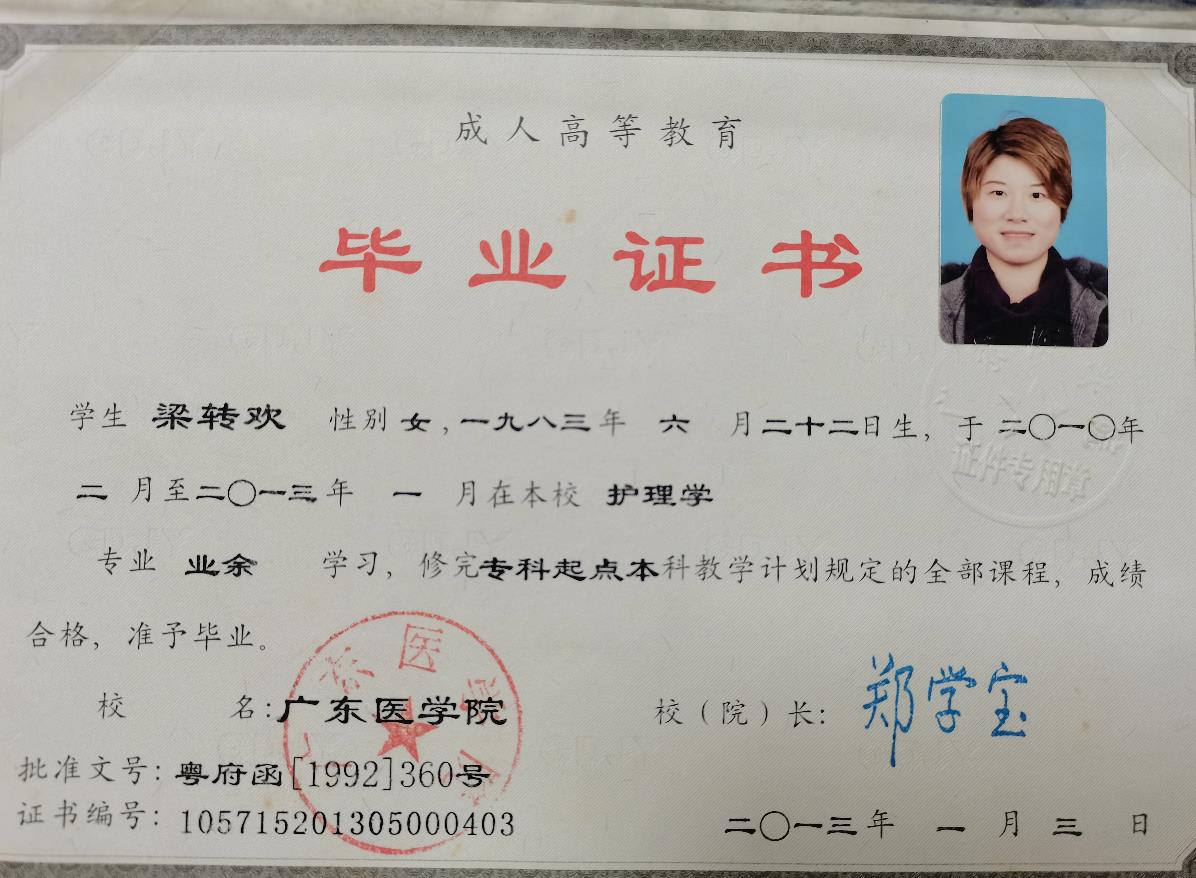 成人高等教育
毕业证书
学生 梁转欢 性别 女，一九八三年 六 月二十二日生，于 二〇一〇年
二 月至二〇一三年 一 月在本校 护理学
专业 业余 学习，修完专科起点本科教学计划规定的全部课程，成绩
合格，准予毕业。
校 名：广东医学院 校（院）长：郑学宝
批准文号：粤府函[1992]360号
证书编号：105715201305000403
二〇一三年 一 月 三 日
证件专用章